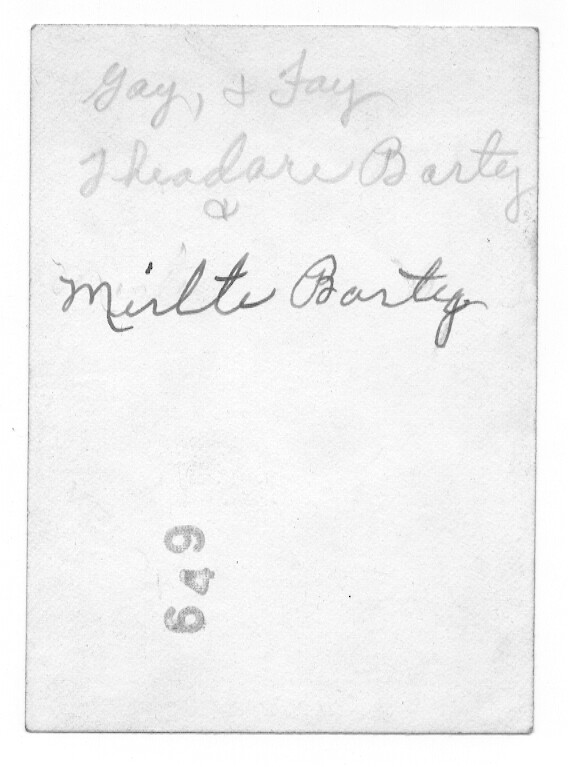 Gay, & Fay
Theadore Bartey
&
Mirlte Bartey
649